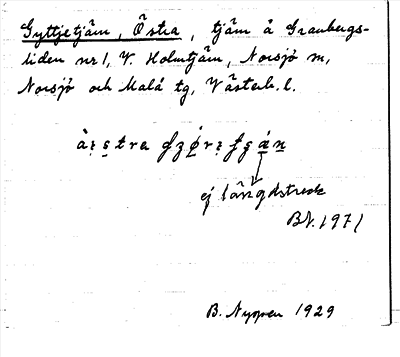 Gyttjetjärn, Östra, tjärn å Granbergs-
liden nr 1, V. Holmtjärn, Norsjö sn,
Norsjö och Malå tg, Västerb. l.
ej längdstreck
BN. 1971
B. Nyman 1929